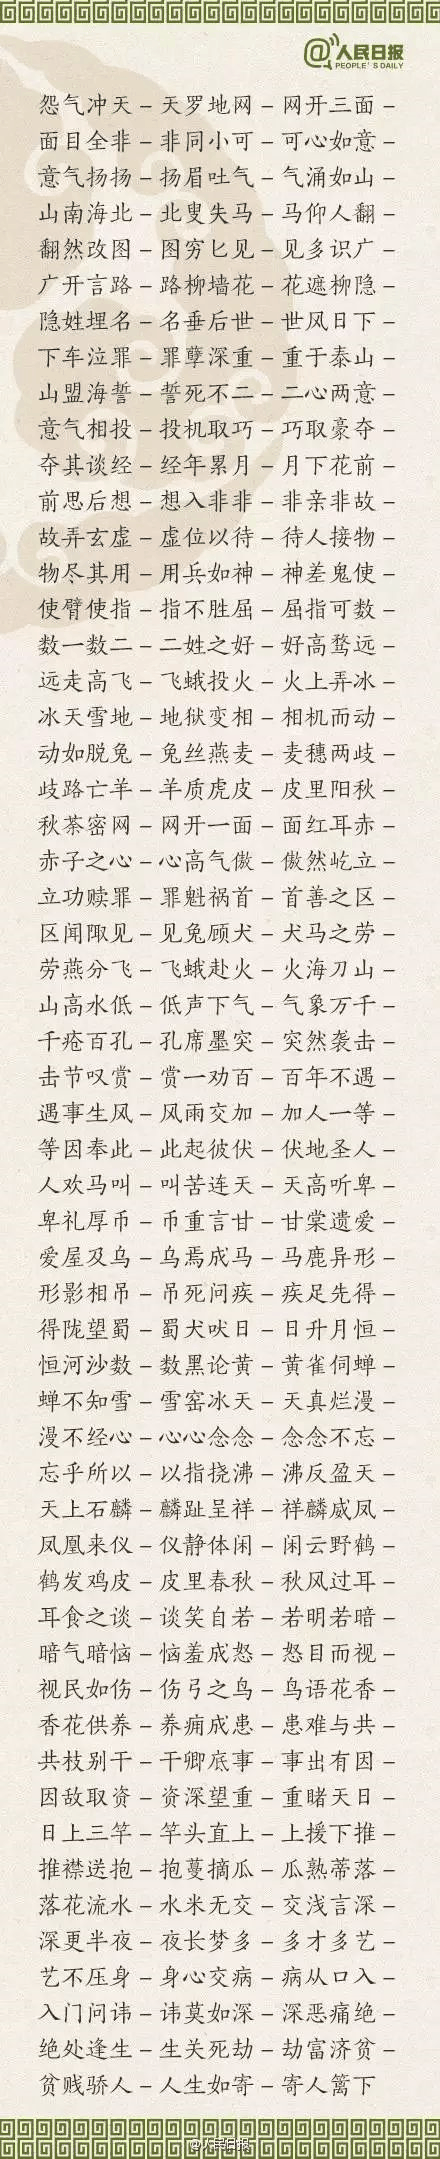 人民日报
PEOPLE'S DAILY
怨气冲天–天罗地网–网开三面–
面目全非–非同小可–可心如意–
意气扬扬–扬眉吐气–气涌如山–
山南海北–北叟失马–马仰人翻–
翻然改图–图穷匕见–见多识广–
广开言路–路柳墙花–花遮柳隐–
隐姓埋名–名垂后世–世风日下–
下车泣罪–罪孽深重–重于泰山–
山盟海誓–誓死不二–二心两意–
意气相投–投机取巧–巧取豪夺–
夺其谈经–经年累月–月下花前–
前思后想–想入非非–非亲非故–
故弄玄虚–虚位以待–待人接物–
物尽其用–用兵如神–神差鬼使–
使臂使指–指不胜屈–屈指可数–
数一数二–二姓之好–好高骛远–
远走高飞–飞蛾投火–火上弄冰–
冰天雪地–地狱变相–相机而动–
动如脱兔–兔丝燕麦–麦穗两歧–
歧路亡羊–羊质虎皮–皮里阳秋–
秋荼密网–网开一面–面红耳赤–
赤子之心–心高气傲–傲然屹立–
立功赎罪–罪魁祸首–首善之区–
区闻陬见–见兔顾犬–犬马之劳–
劳燕分飞–飞蛾赴火–火海刀山–
山高水低–低声下气–气象万千–
千疮百孔–孔席墨突–突然袭击–
击节叹赏–赏一劝百–百年不遇–
遇事生风–风雨交加–加人一等–
等因奉此–此起彼伏–伏地圣人–
人欢马叫–叫苦连天–天高听卑–
卑礼厚币–币重言甘–甘棠遗爱–
爱屋及乌–乌焉成马–马鹿异形–
形影相吊–吊死问疾–疾足先得–
得陇望蜀–蜀犬吠日–日升月恒–
恒河沙数–数黑论黄–黄雀伺蝉–
蝉不知雪–雪窑冰天–天真烂漫–
漫不经心–心心念念–念念不忘–
忘乎所以–以指挠沸–沸反盈天–
天上石麟–麟趾呈祥–祥麟威凤–
凤凰来仪–仪静体闲–闲云野鹤–
鹤发鸡皮–皮里春秋–秋风过耳–
耳食之谈–谈笑自若–若明若暗–
暗气暗恼–恼羞成怒–怒目而视–
视民如伤–伤弓之鸟–鸟语花香–
香花供养–养痈成患–患难与共–
共枝别干–干卿底事–事出有因–
因敌取资–资深望重–重睹天日–
日上三竿–竿头直上–上援下推–
推襟送抱–抱蔓摘瓜–瓜熟蒂落–
落花流水–水米无交–交浅言深–
深更半夜–夜长梦多–多才多艺–
艺不压身–身心交病–病从口入–
入门问讳–讳莫如深–深恶痛绝–
绝处逢生–生关死劫–劫富济贫–
贫贱骄人–人生如寄–寄人篱下
@人民日报